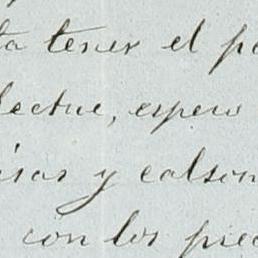 ta tener el po
lectue, espero
isas y calson
con los pied